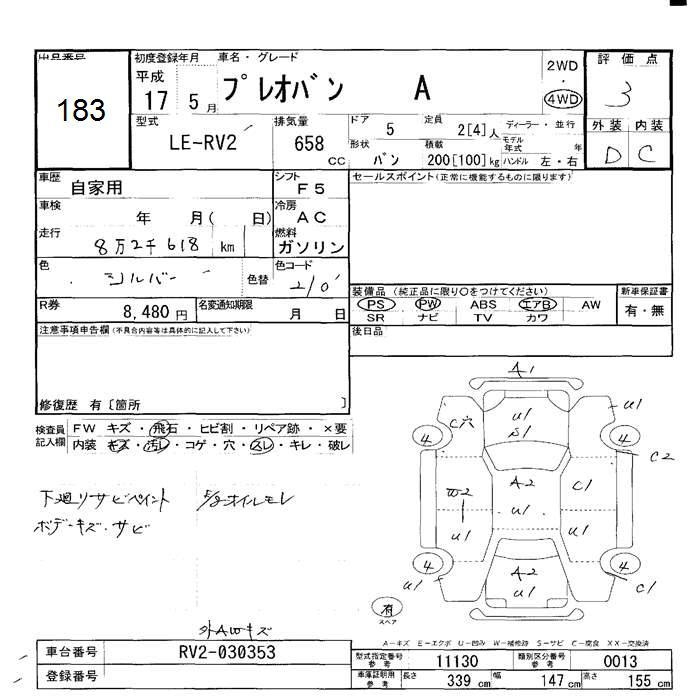 出品番号 初度登録年月 車名・グレード 評価点
183
平成 17 5月 プレオバン A 2WD ・ 4WD 3
型式 排気量 ドア 定員 ディーラー・並行 外装 内装
LE-RV2 658 CC 5 2[4]人 モデル年式 年 D C
形状 バン 積載 200[100]kg ハンドル 左・右
車歴 自家用 シフト F5 セールスポイント(正常に機能するものに限ります)
車検 年 月( 日) 冷房 AC
走行 8万2千618 km 燃料 ガソリン
色 シルバー 色替 色コード
装備品 (純正品に限り○をつけてください) 新車保証書
R券 8,480円 名変通知期限 月 日 PS PW ABS エアB AW 有・無
SR ナビ TV カワ
注意事項申告欄(不具合内容等は具体的に記入して下さい) 後日品
修復歴 有〔箇所 〕
検査員記入欄 FW キズ・飛石・ヒビ割・リペア跡・×要
内装 キズ・汚レ・コゲ・穴・スレ・キレ・破レ
下廻リサビペイント
ボデーキズ・サビ
A1
U1 S1
C穴 U1
4 4 C2
A2 U1
W2 U1
C1 U1
4 4
U1 C1
A2 U1
有
スペア
外AWキズ
A-キズ E-エクボ U-凹み W-補修跡 S-サビ C-腐食 XX-交換済
車台番号 RV2-030353 型式指定番号 参考 11130 類別区分番号 参考 0013
登録番号 車庫証明用 参考 長さ 339 cm 幅 147 cm 高さ 155 cm